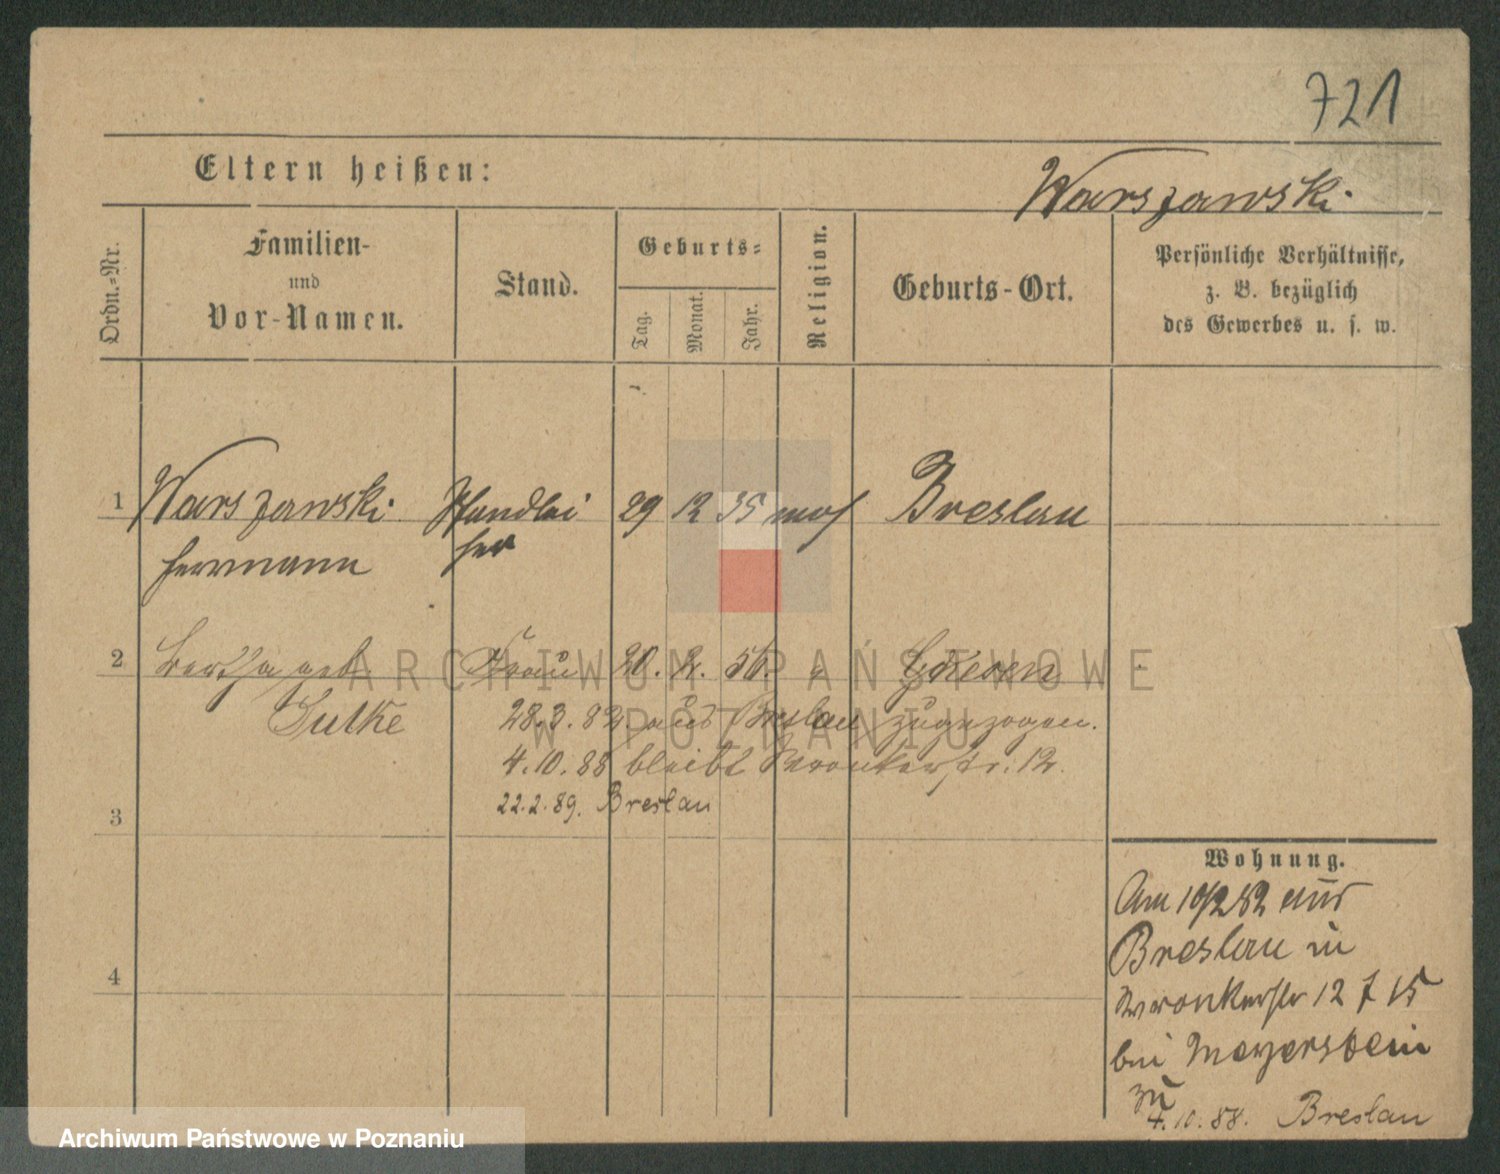 721
Eltern heißen:
Warszawski
Ordn.=Nr.
Familien-
und
Vor-Namen.
Stand.
Geburts=
Tag.
Monat.
Jahr.
Religion.
Geburts-Ort.
Persönliche Verhältnisse,
z. B. bezüglich
des Gewerbes u. s. w.
1 Warszawski 29 12 35 mos Breslau
Herrmann
2 Bertha geb. Frau 20. 2. 56. " Gnesen
Jutke 28.3.82. aus Breslau zugezogen.
4.10.88 bleibt Wronkerstr. 12.
22.2.89. Breslau
3
4
Wohnung.
Am 10/2 82 aus
Breslau in
Wronkerstr 12 7 15
bei Meyerstein
zu
4.10.88. Breslau
ARCHIWUM PAŃSTWOWE
W POZNANIU
Archiwum Państwowe w Poznaniu